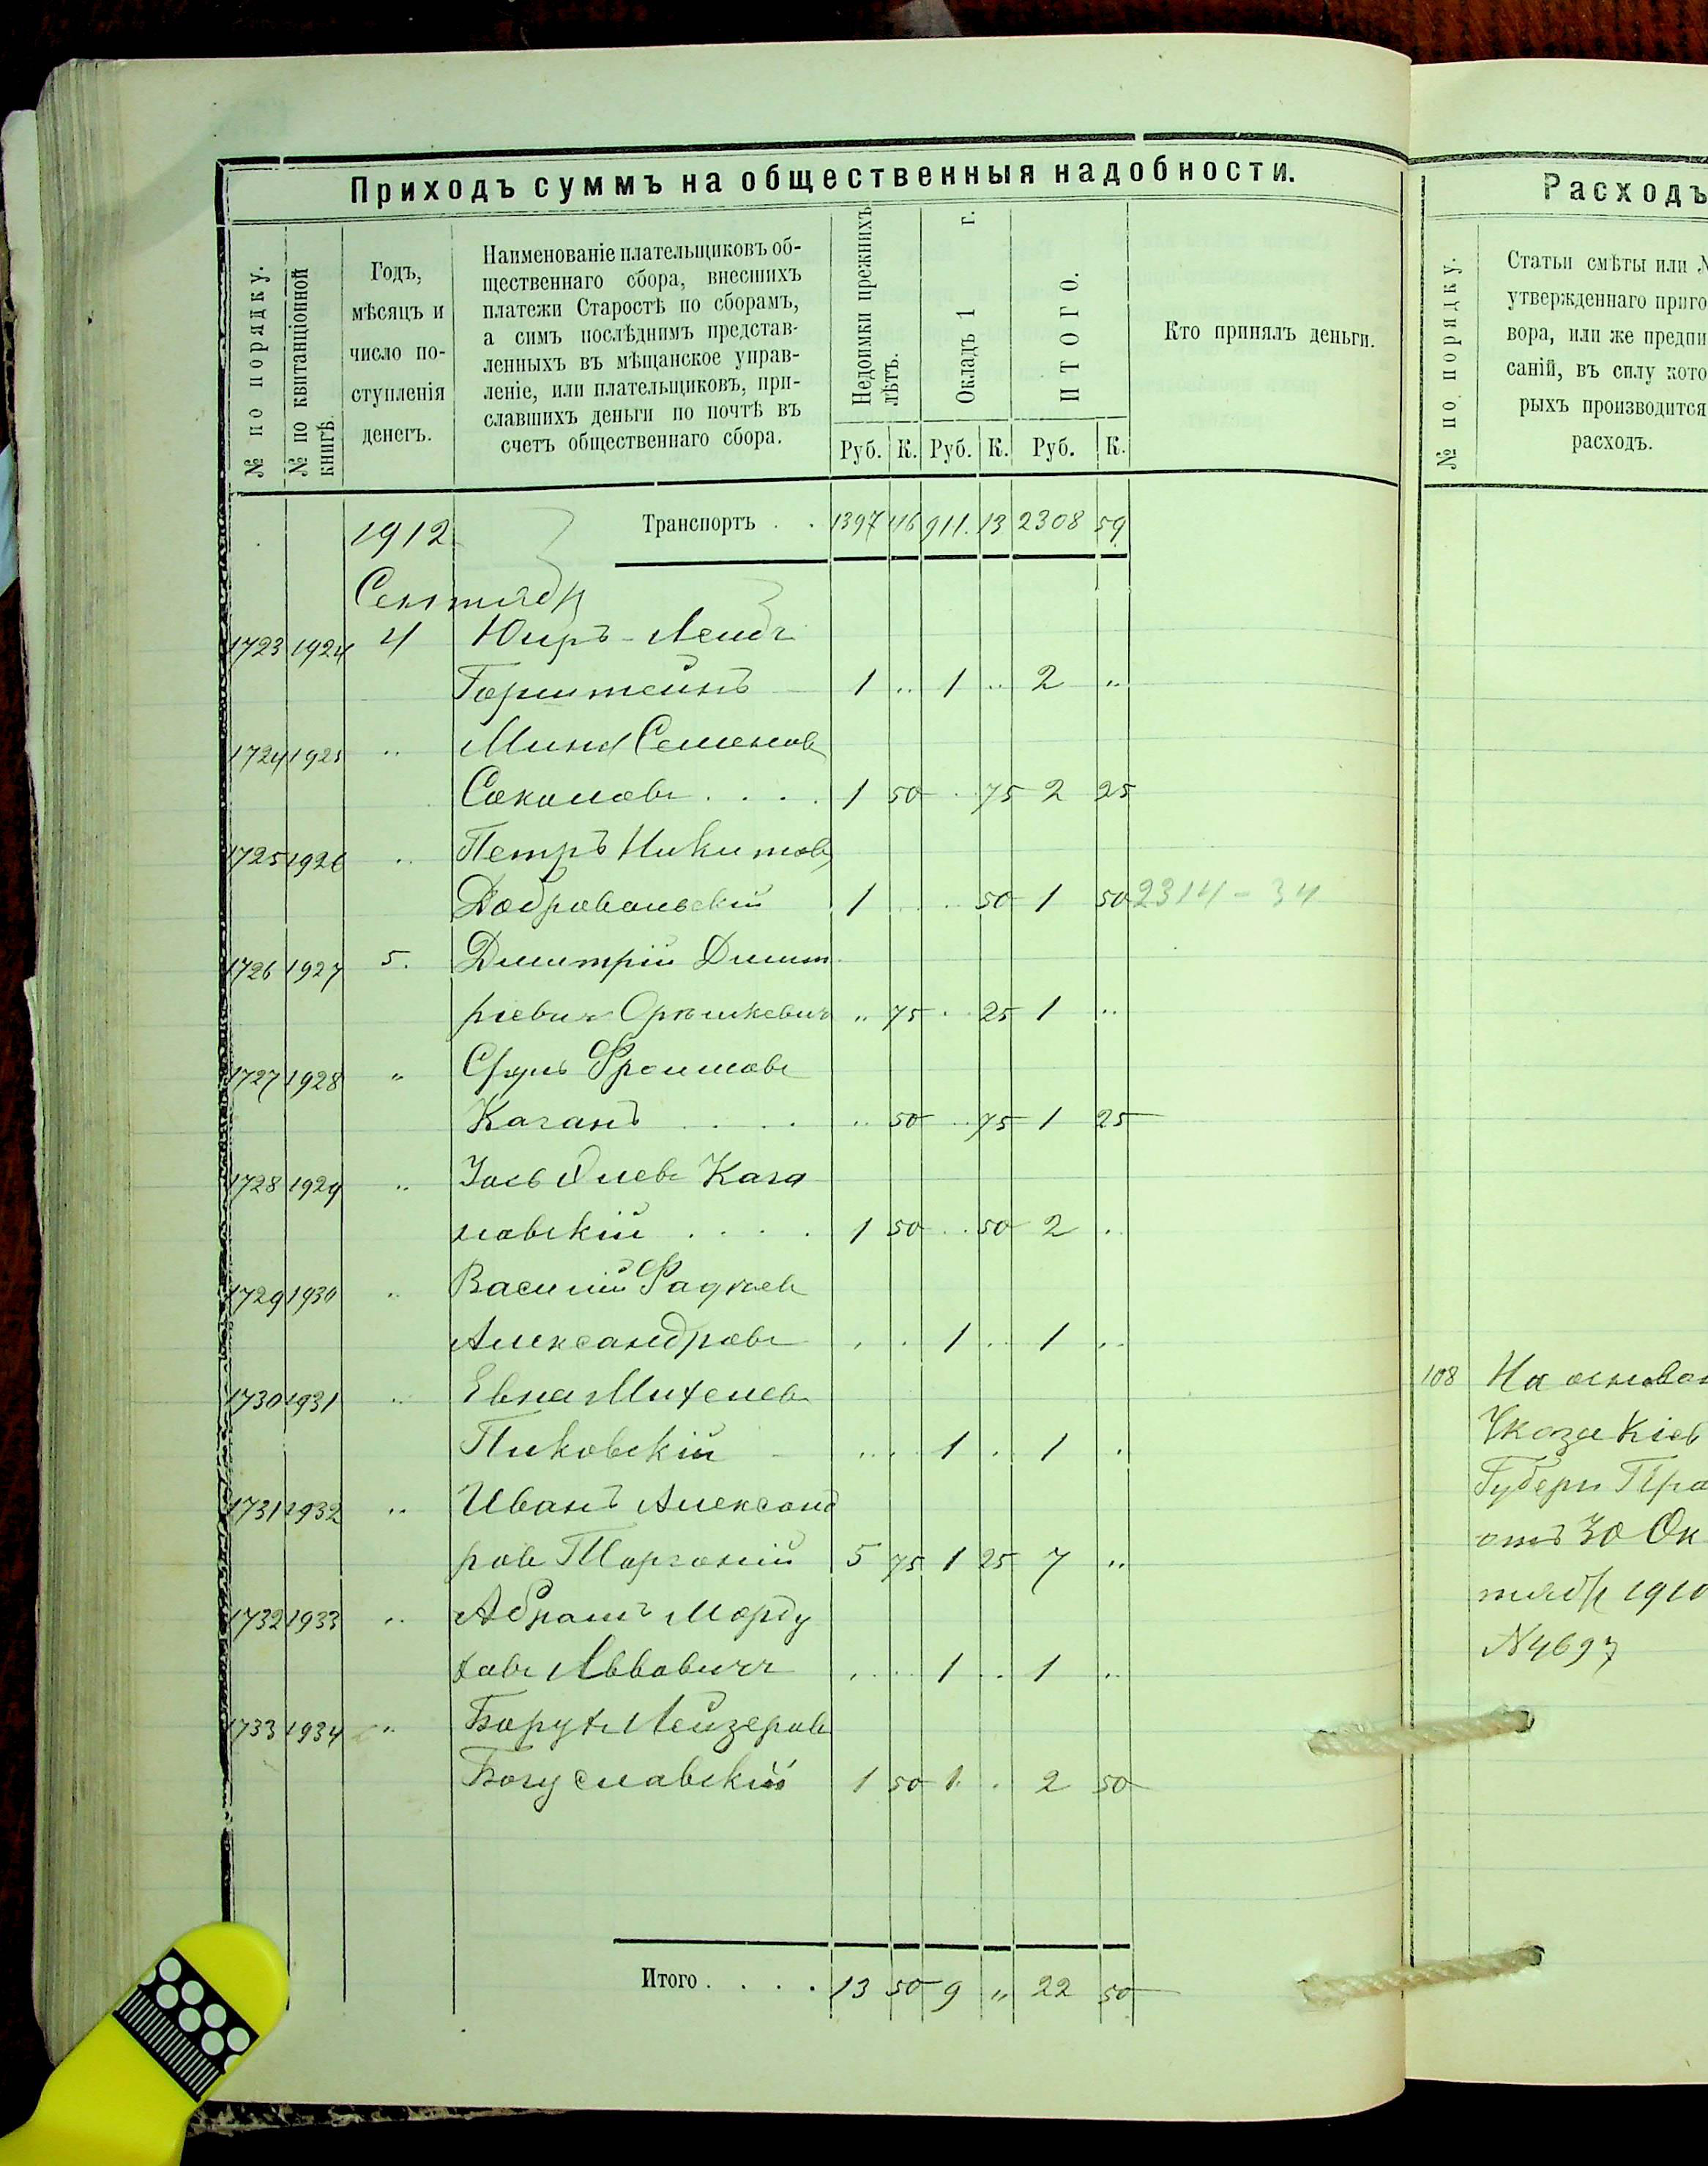 Приходъ суммъ на общественныя надобности.
№ по порядку.
№ по квитанціонной книгѣ.
Годъ,
мѣсяцъ и
число по-
ступленія
денегъ.
Наименованіе плательщиковъ об-
щественнаго сбора, внесшихъ
платежи Старостѣ по сборамъ,
а симъ послѣднимъ представ-
ленныхъ въ мѣщанское управ-
леніе, или плательщиковъ, при-
славшихъ деньги по почтѣ въ
счетъ общественнаго сбора.
Недоимки прежнихъ
лѣтъ.
Окладъ 1 г.
ИТОГО.
Руб. К. Руб. К. Руб. К.
Кто принялъ деньги.
1912 Транспортъ . . 1397 46 911. 13 2308 59
Сентябр
1723 1924 4
Горштейнъ 1 .. 1 .. 2 ..
1724 1925 .. Семенов
Соколовъ . . . . 1 50 . 75 2 25
1725 1926 .. Петръ Никитов
Добровольскій 1 . . 50 1 50 2314-34
1726 1927 5. Димитрій Димит
ріевич .. 75 . 25 1 ..
1727 1928 " Сруль Фроимовъ
Каганъ . . . .. 50 .. 75 1 25
1728 1929 .. Кага
новскій . . . . 1 50 .. 50 2 ..
1729 1930 .. Василій Фадѣев
Александровъ . . 1 .. 1 ..
1730 1931 .. Михелев
Пиковскій .. . 1 . 1 .
1731 1932 .. Иванъ Александ
ров 5 75 1 25 7 ..
1732 1933 .. Абрамъ Морду
ховъ Аввовичъ . .. 1 .. 1 ..
1733 1934 " Борух Лейзеров
Богуславскій 1 50 1. . 2 50
Итого . . . . 13 50 9 " 22 50
Расходъ
№ по порядку.
Статьи смѣты или №
утвержденнаго приго
вора, или же предпи
саній, въ силу кото
рыхъ производится
расходъ.
108 На основан
Указа Кіев
Губерн Пра
отъ 30 Ок
тября 1910
№4697